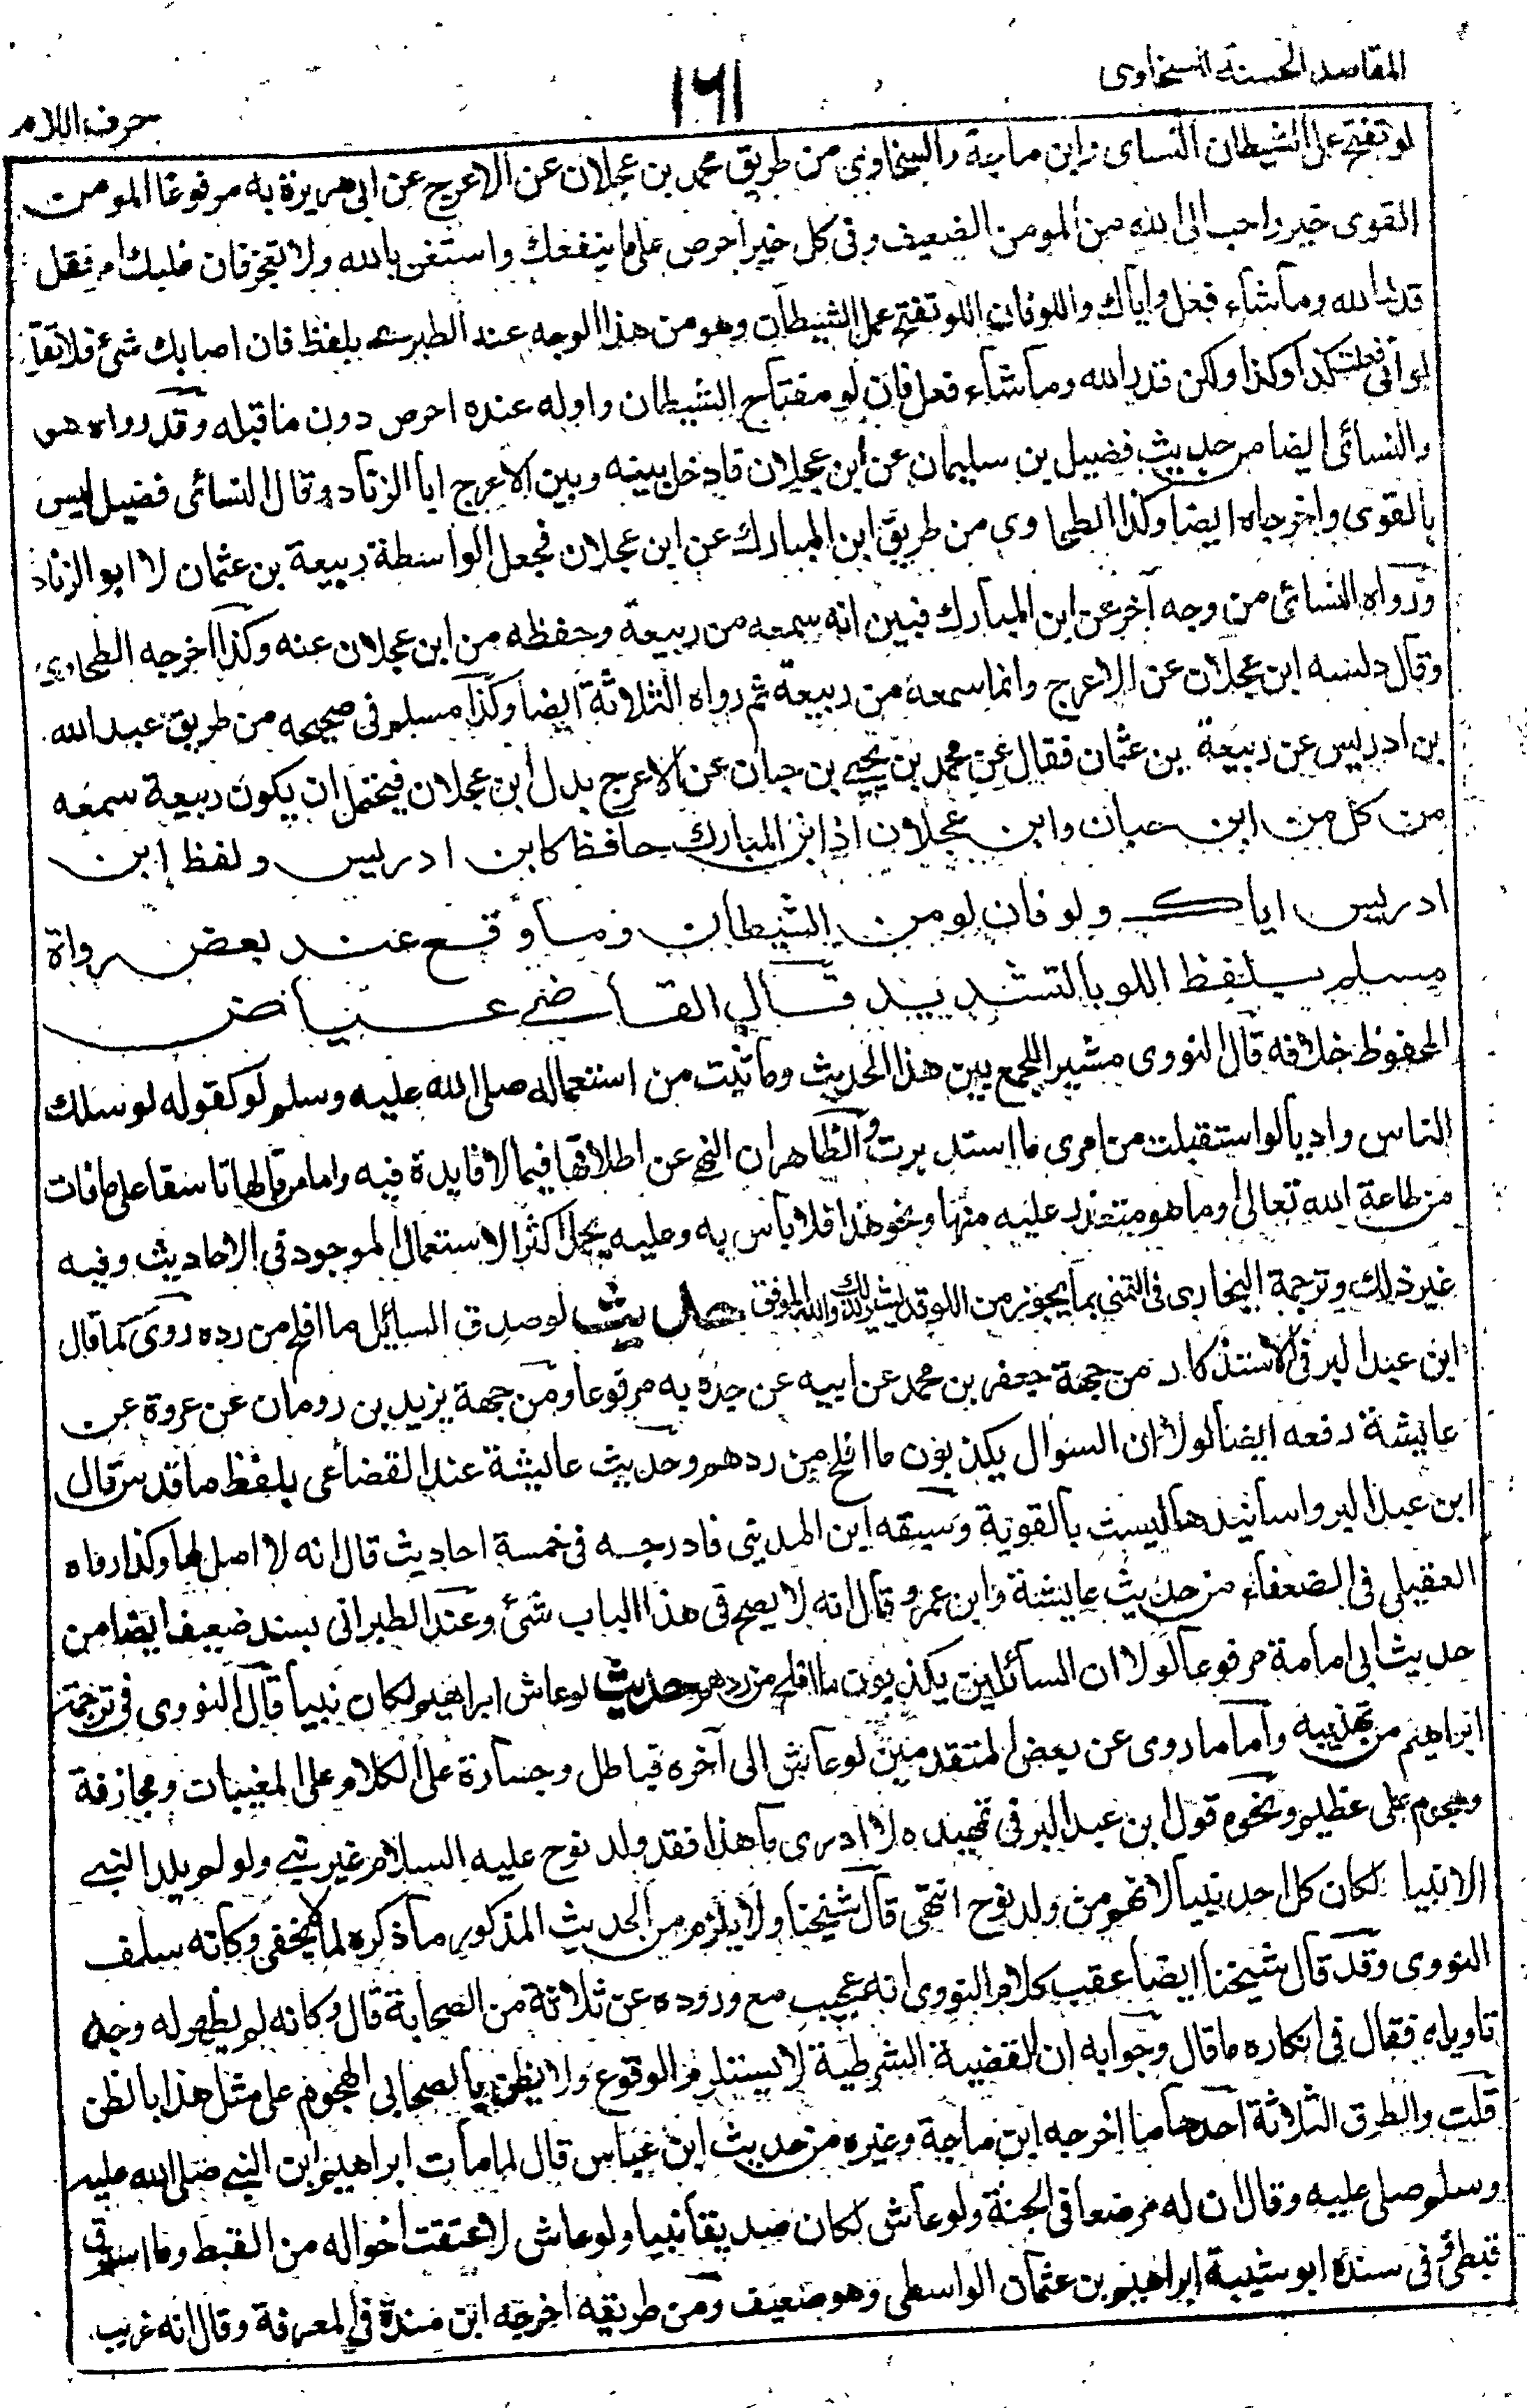 المقاصد الحسنة للسخاوى
١٦١
حرف اللام
لو تفتح عمل الشيطان النساى وابن ماجة والطحاوى من طريق محمد بن عجلان عن الاعرج عن ابى هريرة به مرفوعا المومن
القوى خير واحب الى الله من المومن الضعيف وفى كل خير احرص على ما ينفعك واستعن بالله ولا تعجز فان غلبك امر فقل
قدر الله وما شاء فعل واياك واللو فان اللو تفتح عمل الشيطان وهو من هذا الوجه عند الطبرى بلفظ فان اصابك شئ فلا تقل
لو أنى فعلت كذا وكذا ولكن قدر الله وما شاء فعل فان لو مفتاح الشيطان واوله عنده احرص دون ما قبله وقد رواه هو
والنسائى ايضا من حديث فضيل بن سليمان عن ابن عجلان فادخل بينه وبين الاعرج ابا الزناد وقال النسائى فضيل ليس
بالقوى واخرجاه ايضا وكذا الطحاوى من طريق ابن المبارك عن ابن عجلان فجعل الواسطة ربيعة بن عثمان لا ابو الزناد
ورواه النسائى من وجه آخر عن ابن المبارك فبين انه سمعه من ربيعة وحفظه من ابن عجلان عنه وكذا اخرجه الطحاوى
وقال دلسه ابن عجلان عن الاعرج وانما سمعه من ربيعة ثم رواه الثلاثة ايضا وكذا مسلم فى صحيحه من طريق عبد الله
بن ادريس عن ربيعة بن عثمان فقال عن محمد بن يحيى بن حبان عن الاعرج بدل ابن عجلان فيحتمل ان يكون ربيعة سمعه
من كل من ابن حبان وابن عجلان اذ ابن المبارك حافظ كابن ادريس ولفظ ابن
ادريس اياك ولو فان لو من الشيطان وما وقع عند بعض رواة
مسلم بلفظ اللو بالتشديد قال القاضى عياض
المحفوظ خلافه قال النووى مشيرا للجمع بين هذا الحديث وما ثبت من استعماله صلى الله عليه وسلم لو كقوله لو سلك
الناس واديا لو استقبلت من امرى ما استدبرت والظاهر ان النهى عن اطلاقها فيما لا فايدة فيه واما من قالها تاسفا على ما فات
من طاعة الله تعالى وما هو متعذر عليه منها ونحو هذا فلا باس به وعليه يحمل اكثر الاستعمال الموجود فى الاحاديث وفيه
غير ذلك وترجمة البخارى فى التمنى بما يجوز من اللو قد يشير لذلك والله الموفق حديث لو صدق السائل ما افلح من رده روى كما قال
ابن عبد البر فى الاستذكار من جهة جعفر بن محمد عن ابيه عن جده به مرفوعا ومن جهة يزيد بن رومان عن عروة عن
عايشة رفعه ايضا لولا ان السوال يكذبون ما افلح من ردهم وحديث عايشة عند القضاعى بلفظ ما قدس قال
ابن عبد البر واسانيدها ليست بالقوية وسبقه ابن المدينى فادرجه فى خمسة احاديث قال انه لا اصل لها وكذا رواه
العقيلى فى الضعفاء من حديث عايشة وابن عمرو وقال انه لا يصح فى هذا الباب شئ وعند الطبرانى بسند ضعيف ايضا من
حديث ابى امامة مرفوعا لولا ان السائلين يكذبون ما افلح من ردهم حديث لو عاش ابراهيم لكان نبيا قال النووى فى ترجمة
ابراهيم من تهذيبه واما ما روى عن بعض المتقدمين لو عاش الى آخره فباطل وجسارة على الكلام على المغيبات ومجازفة
وهجوم على عظيم ونحوه قول ابن عبد البر فى تمهيده لا ادرى ما هذا فقد ولد نوح عليه السلام غير نبى ولو لم يلد النبى
الا نبيا لكان كل احد نبيا لانهم من ولد نوح انتهى قال شيخنا ولا يلزم من الحديث المذكور ما ذكره لما لا يخفى وكانه سلف
النووى وقد قال شيخنا ايضا عقب كلام النووى انه عجيب مع وروده عن ثلاثة من الصحابة قال وكانه لم يظهر له وجه
تاويله فقال فى انكاره ما قال وجوابه ان القضية الشرطية لا يستلزم الوقوع ولا يظن بالصحابى الهجوم على مثل هذا بالظن
قلت والطرق الثلاثة احدها ما اخرجه ابن ماجة وغيره من حديث ابن عباس قال لما مات ابراهيم ابن النبى صلى الله عليه
وسلم صلى عليه وقال ان له مرضعا فى الجنة ولو عاش لكان صديقا نبيا ولو عاش لاعتقت اخواله من القبط وما استرق
قبطى وفى سنده ابو شيبة ابراهيم بن عثمان الواسطى وهو ضعيف ومن طريقه اخرجه ابن مندة فى المعرفة وقال انه غريب